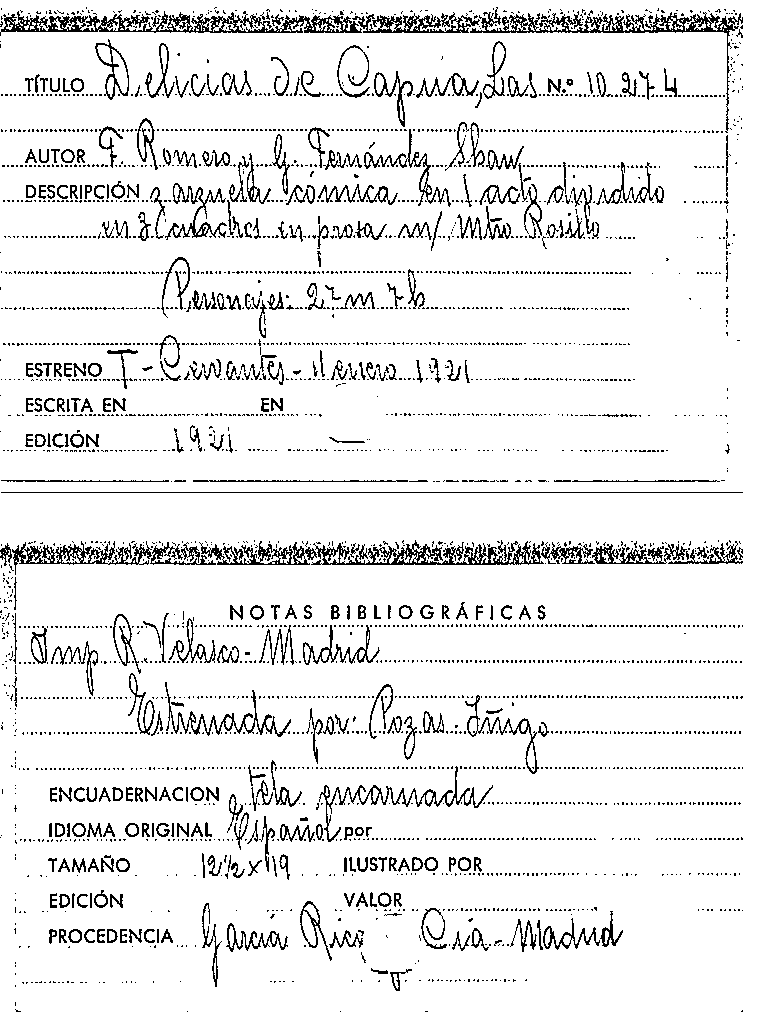 TÍTULO Delicias de Capua, Las N.º 10274
AUTOR F. Romero y G. Fernández Shaw
DESCRIPCIÓN zarzuela cómica en 1 acto dividido
en 3 Cuadros en prosa m/ Mtro Rosillo
Personajes: 27 m 7 h
ESTRENO T - Cervantes - 11 enero 1921
ESCRITA EN EN
EDICIÓN 1921 —
NOTAS BIBLIOGRÁFICAS
Imp R. Velasco - Madrid
Estrenada por: Pozas - Iñigo
ENCUADERNACION tela encarnada
IDIOMA ORIGINAL Español por
TAMAÑO 12½ x 19 ILUSTRADO POR
EDICIÓN VALOR
PROCEDENCIA García Rico Cía - Madrid